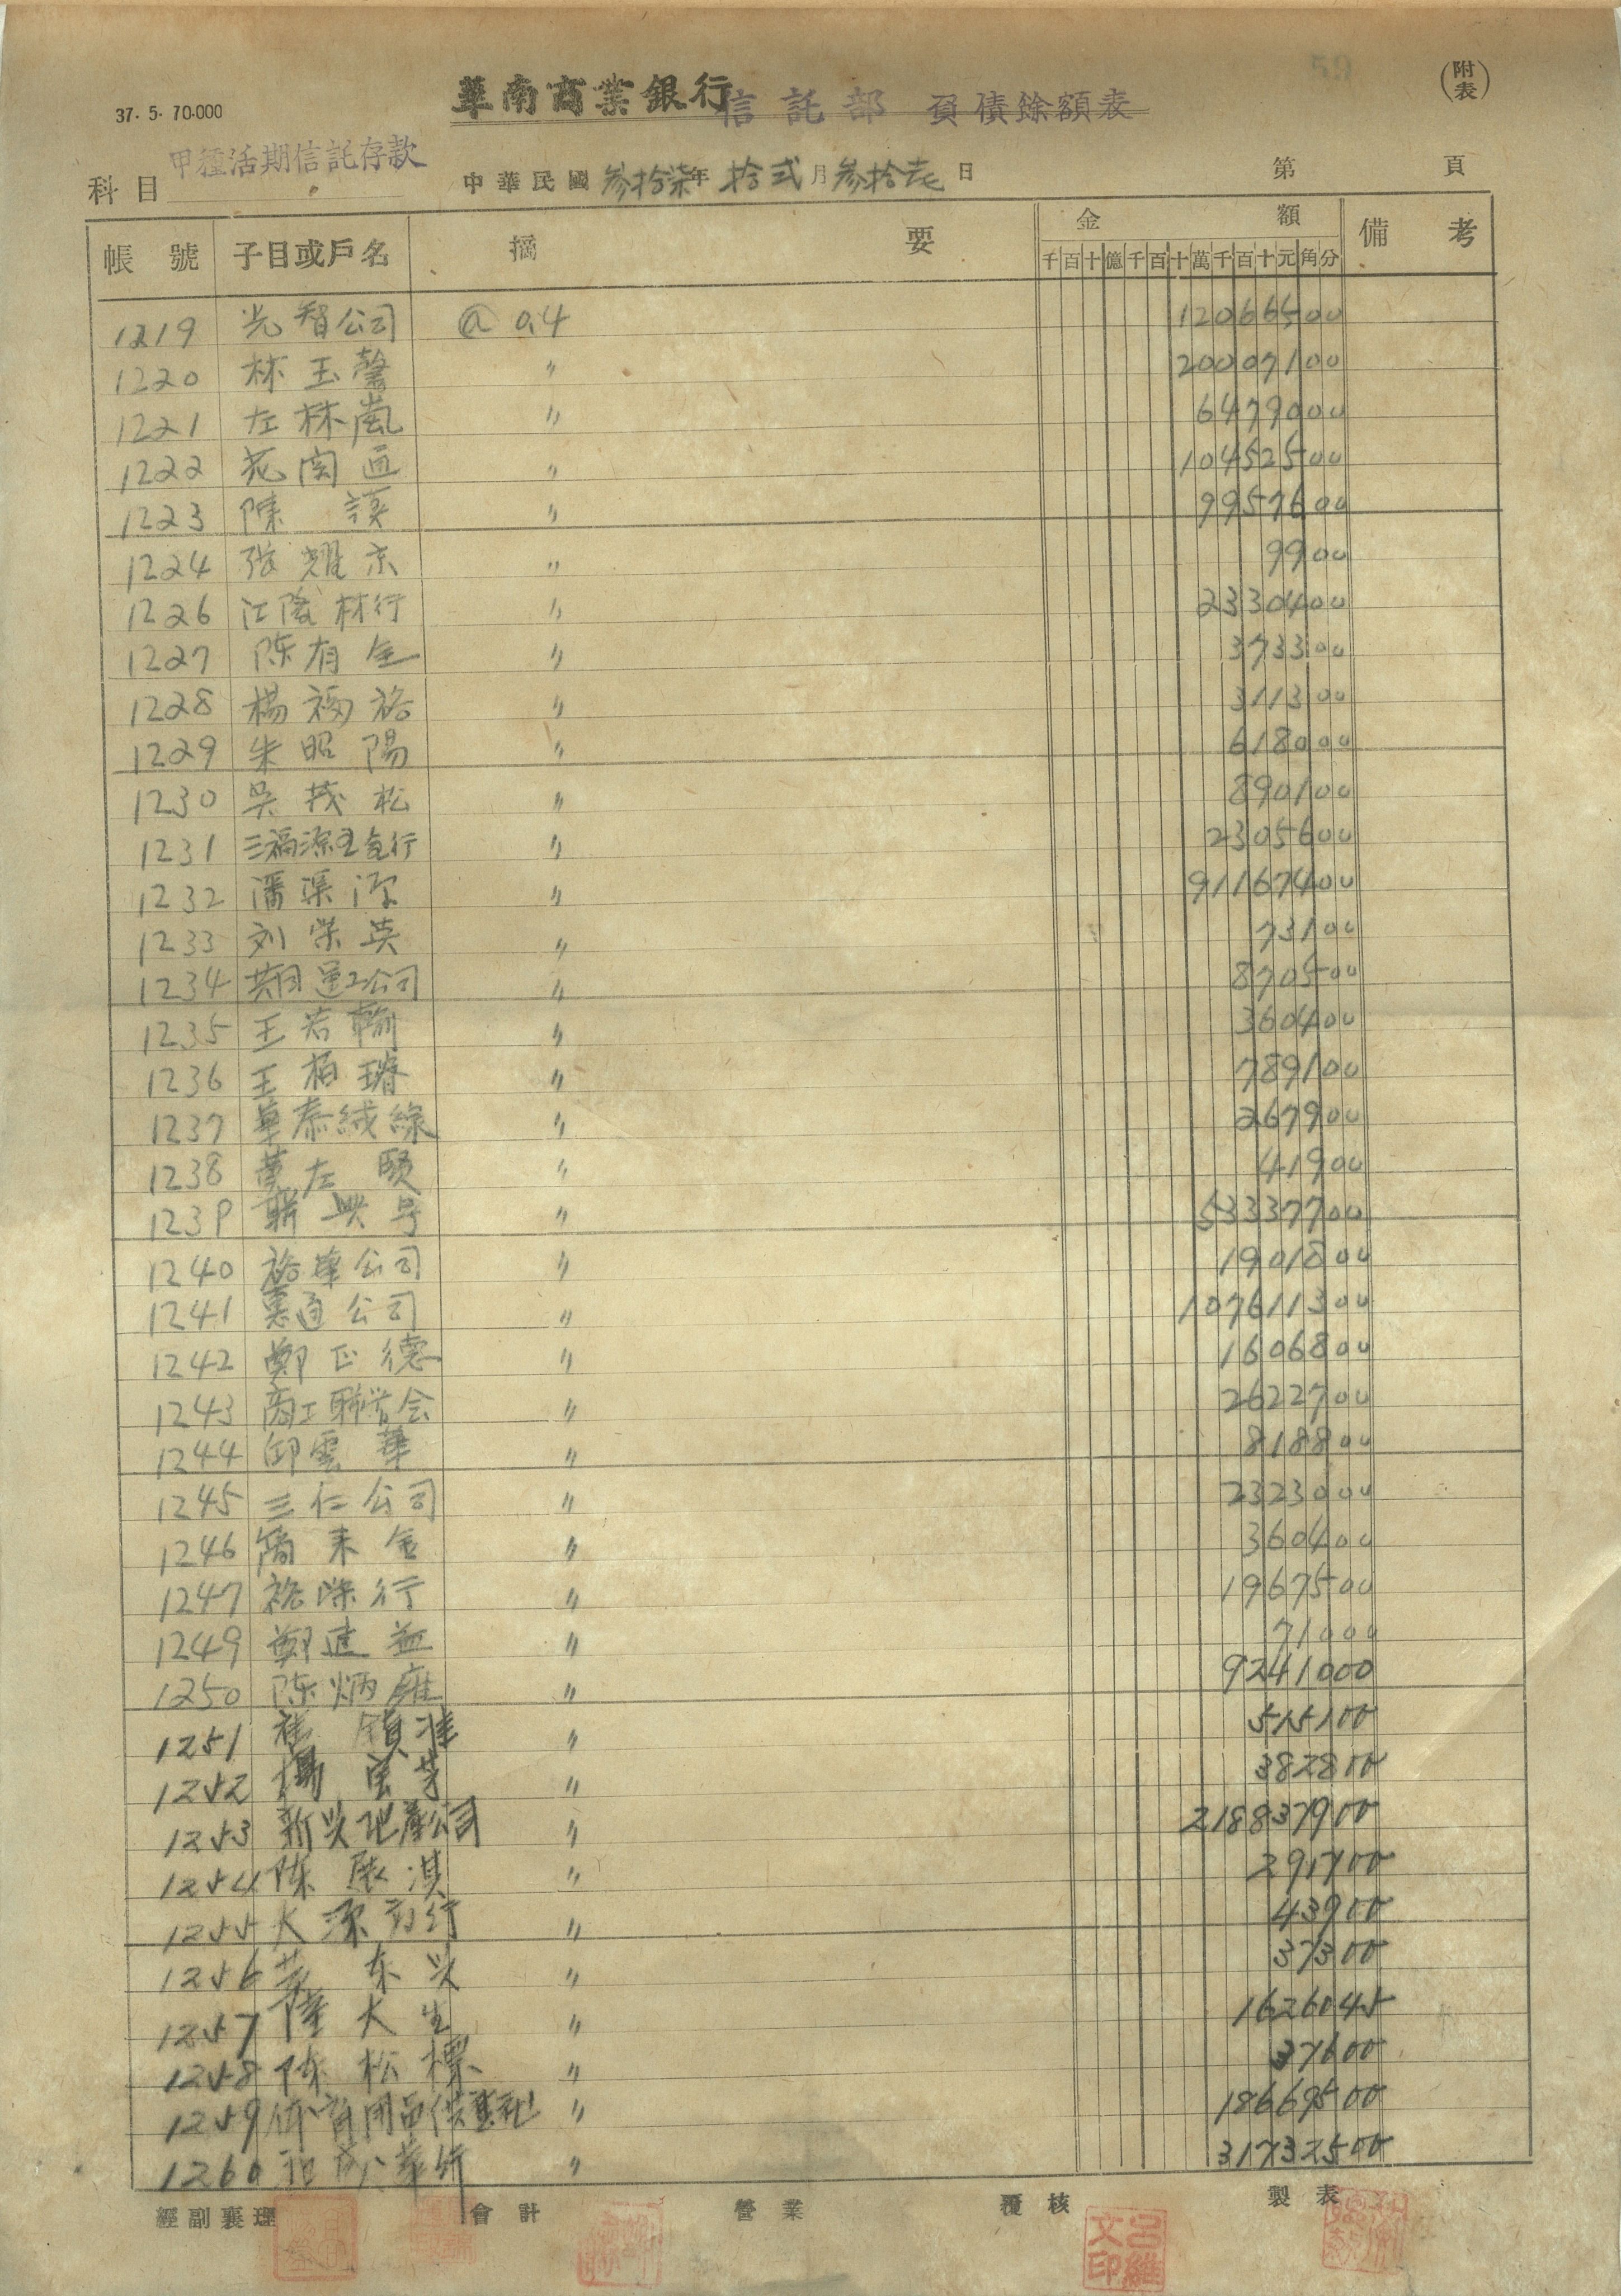 59
(附表)
37. 5. 70.000
華南商業銀行信託部 負債餘額表
科目 甲種活期信託存款
中華民國參拾柒年拾弍月參拾壱日 第 頁
帳號 子目或戶名 摘要 金額 備考
千百十億千百十萬千百十元角分
1219 光智公司 @ 0.4 12066500
1220 林玉馨 〃 20007100
1221 左林嵐 〃 6479000
1222 范闵通 〃 10452500
1223 陳 〃 9957600
1224 張耀京 〃 9900
1226 江陵林行 〃 2330400
1227 陈有全 〃 373300
1228 楊福裕 〃 311300
1229 朱昭陽 〃 618000
1230 吳茂松 〃 890100
1231 三福源金行 〃 2305600
1232 潘渠源 〃 91167400
1233 刘榮英 〃 73100
1234 公司 〃 870500
1235 王若 〃 360400
1236 王柏璿 〃 789100
1237 華泰絨線 〃 267900
1238 左賢 〃 41900
1239 聯興号 〃 53337700
1240 裕華公司 〃 1901800
1241 惠通公司 〃 107611300
1242 鄭正德 〃 1606800
1243 商工聯合会 〃 2622700
1244 邱雲華 〃 818800
1245 三仁公司 〃 2323000
1246 簡来金 〃 360400
1247 裕隆行 〃 1967500
1249 鄭建益 〃 71000
1250 陈炳 〃 9241000
1251 鎮洼 〃 515100
1252 楊 芳 〃 382800
1253 新兴地產公司 〃 218837900
1254 陈展淇 〃 291700
1255 大源行 〃 43900
1256 东兴 〃 37300
1257 陸大生 〃 1626045
1258 陈松標 〃 37600
1259 体育用品供應社 〃 18669500
1260 和成行 〃 31732500
經副襄理 會計 營業 覆核 製表
呂維文印